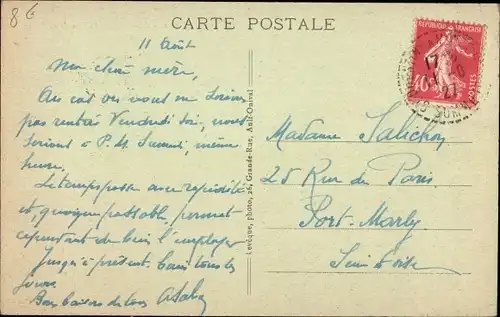 86
CARTE POSTALE
11 Août
Ma chère mère,
Au cas où vous ne
pas rentrer Vendredi soir, nous
serions à P. M. Samedi, même
heure.
Le temps passe avec rapidité
et, quoique passable, permet
cependant de bien l'employer
jusqu'à présent. Tous les
jours.
Bons baisers de tous
Levêque, photo, 26, Grande-Rue, Ault-Onival
REPUBLIQUE FRANÇAISE
40c
POSTES
Madame Salichon
25 Rue de Paris
Port-Marly
Seine et Oise